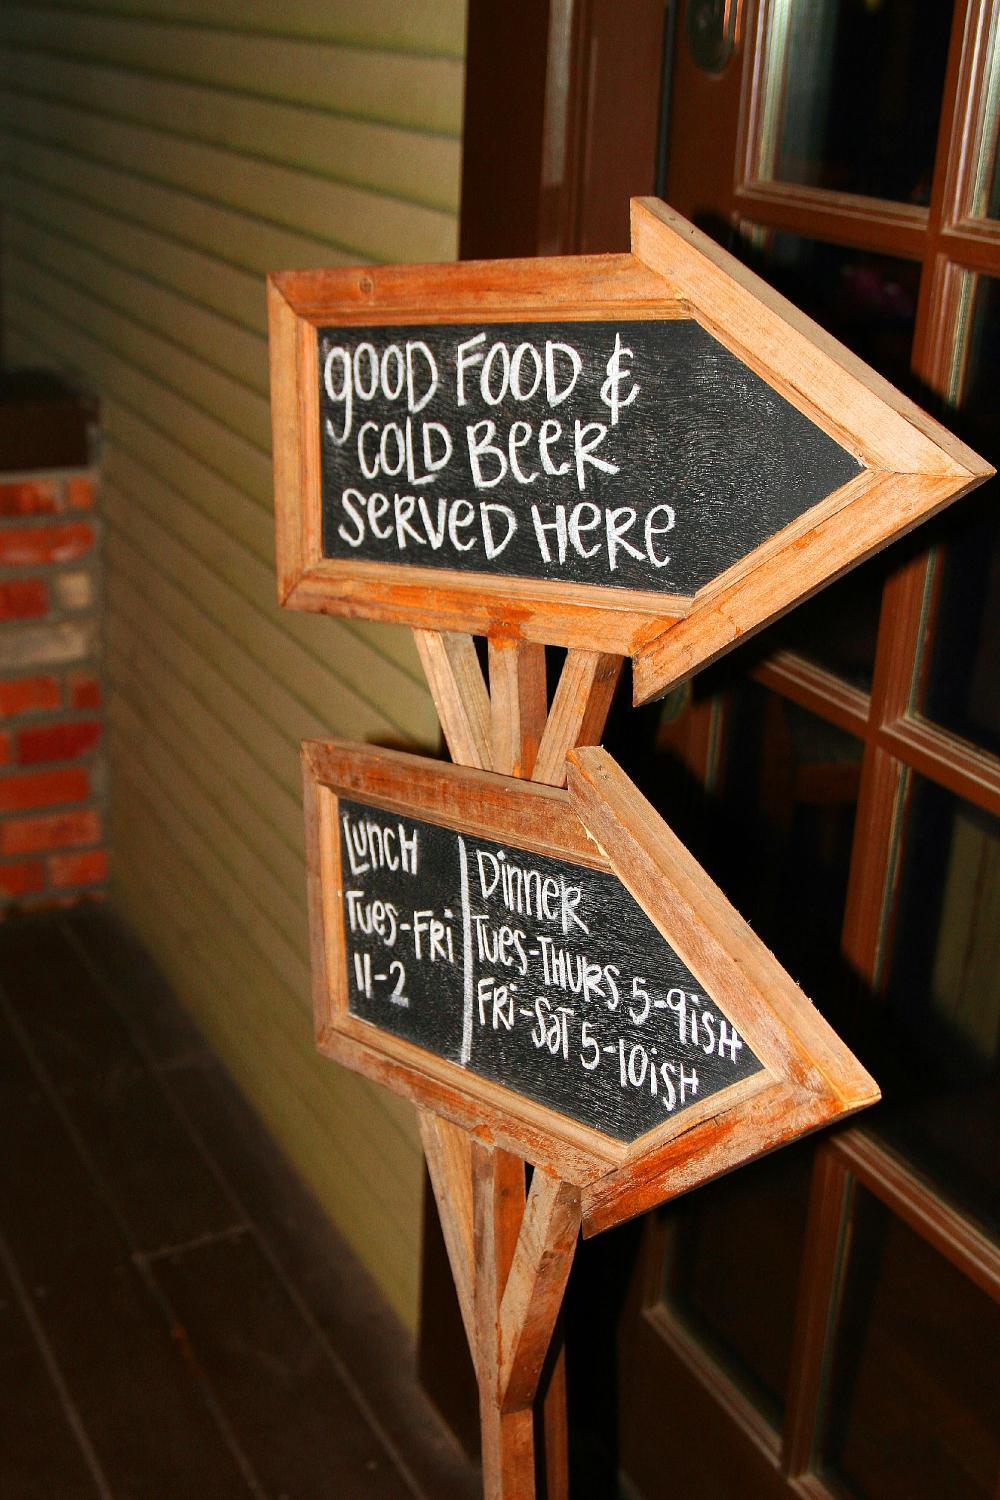 gOOD FOOD &
COLD BEER
SERVED HERE
Lunch
Tues-Fri
11-2
Dinner
Tues-Thurs 5-9ish
Fri-Sat 5-10ish